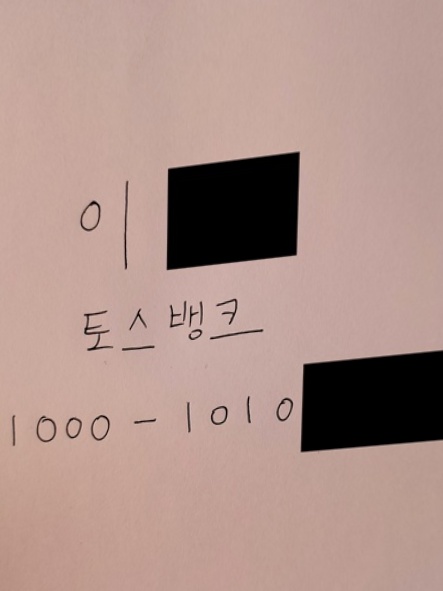 이
토스뱅크
1000 - 1010